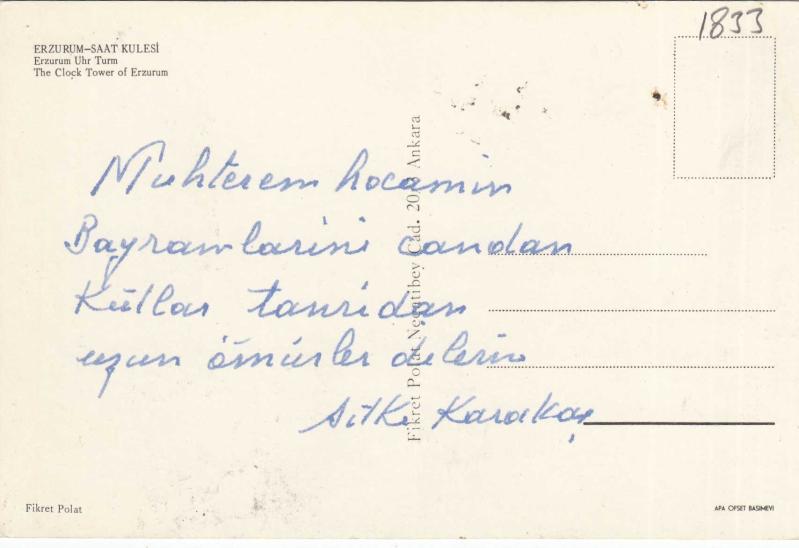 1833
ERZURUM–SAAT KULESİ
Erzurum Uhr Turm
The Clock Tower of Erzurum
Muhterem hocamin
Bayramlarini candan
Kütlar tanridan
uzun ömürler dilerim
Sıtkı Karakaş
Fikret Polat Necatibey Cad. 20 Ankara
Fikret Polat
APA OFSET BASIMEVI